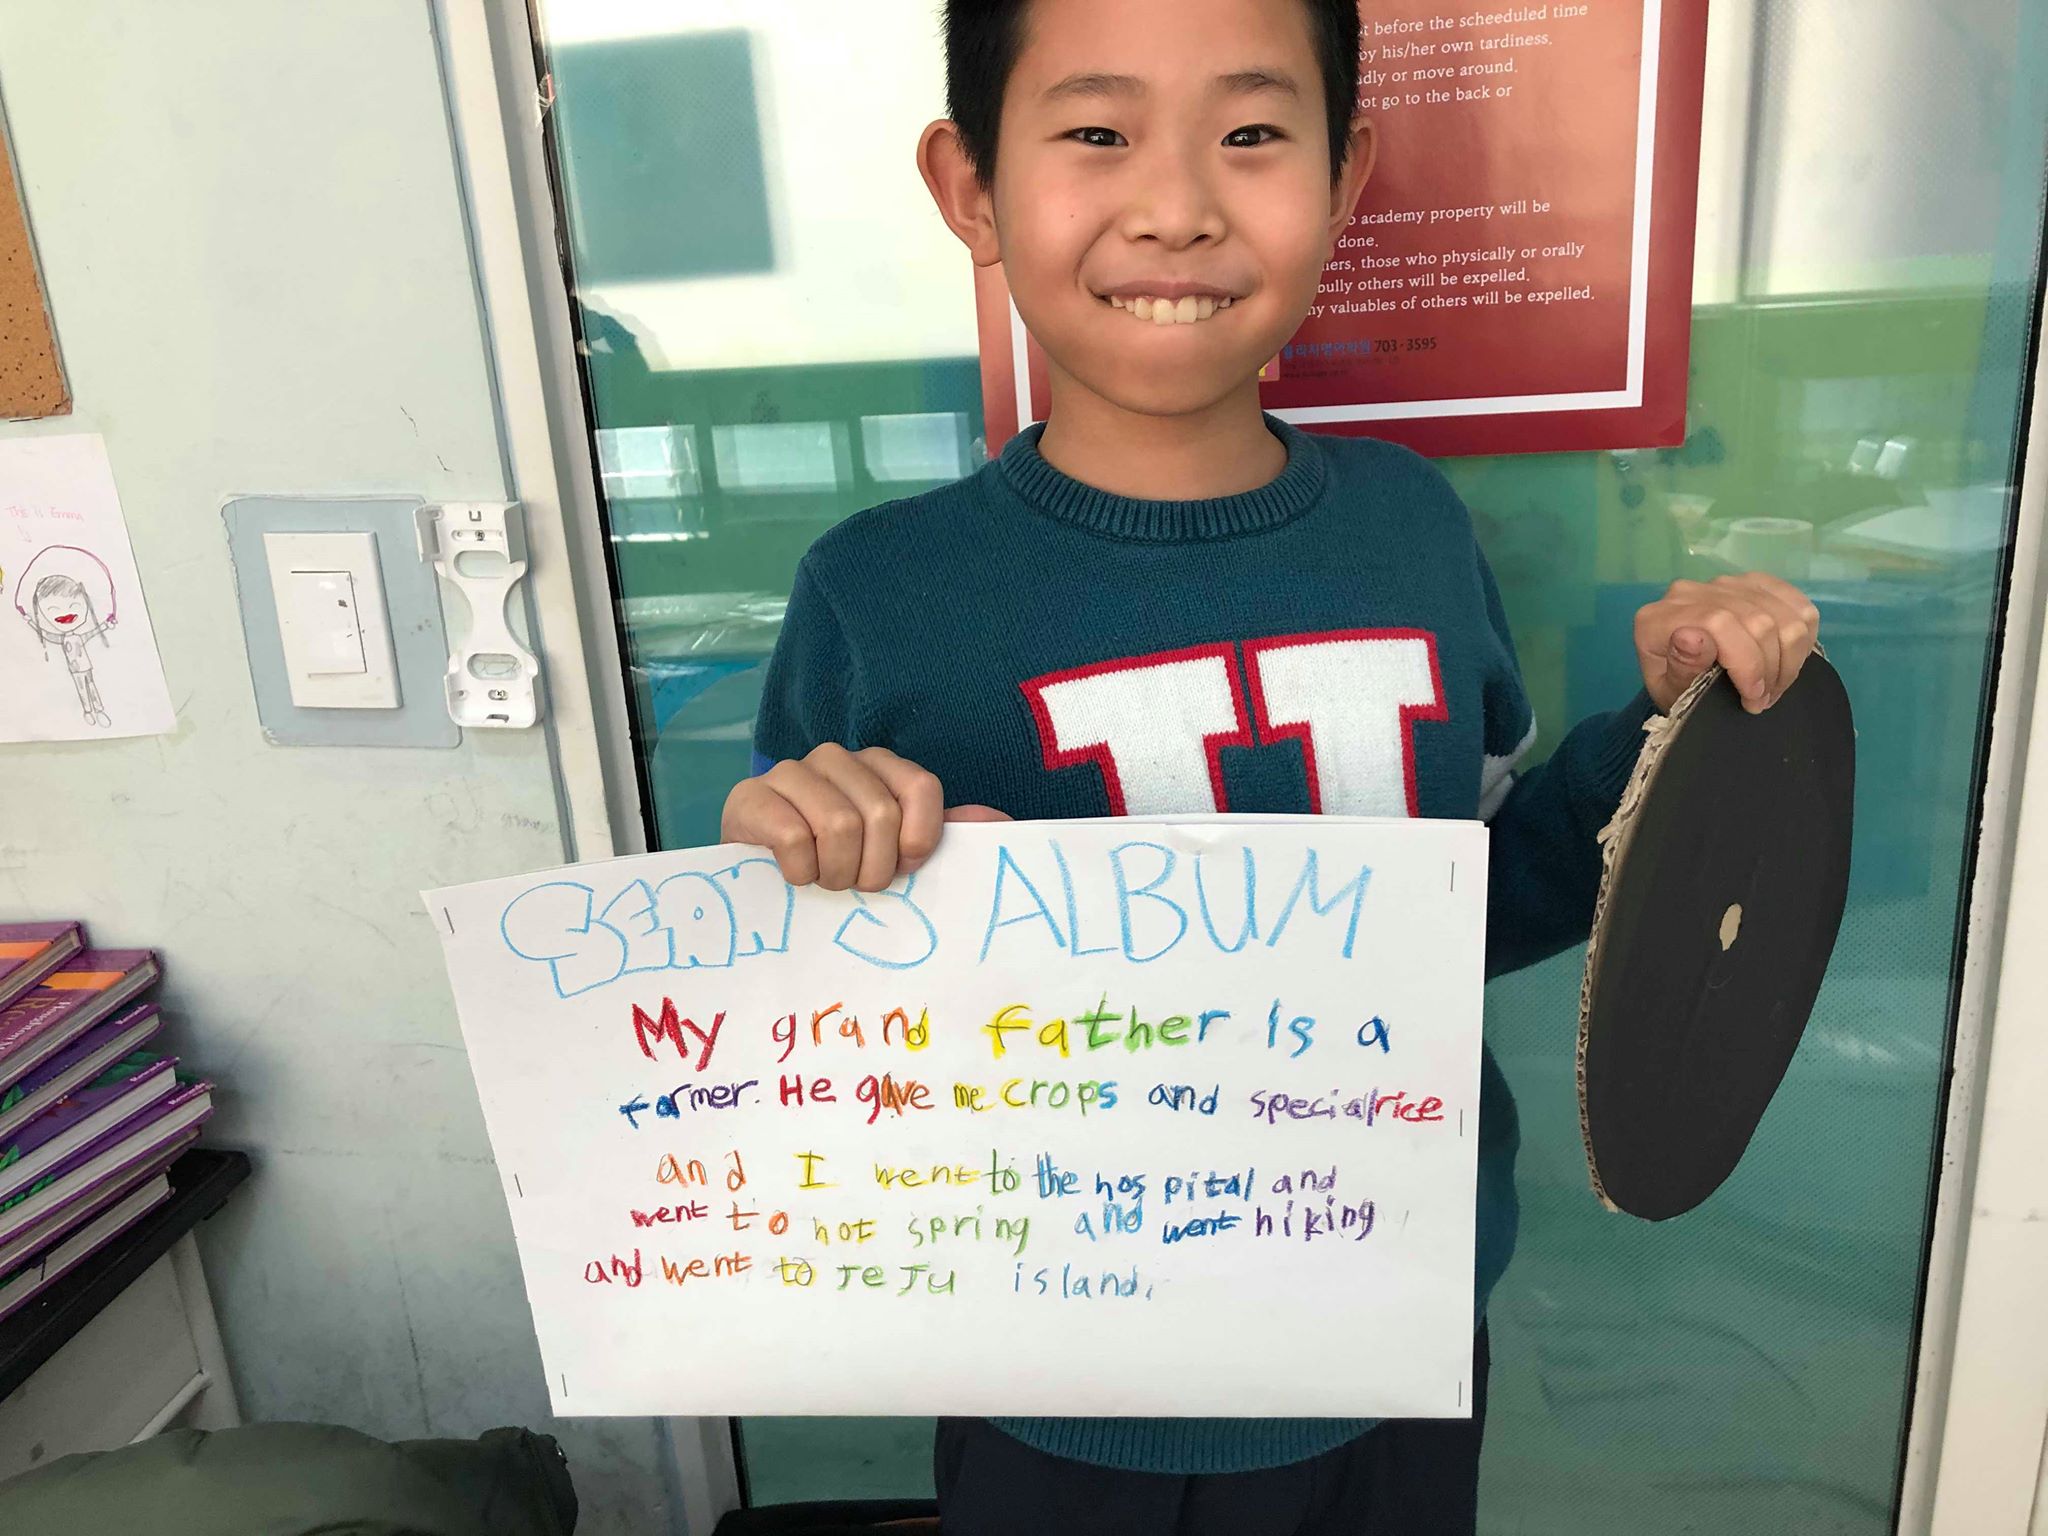 t before the scheeduled time
by his/her own tardiness.
dly or move around.
ot go to the back or
o academy property will be
done.
ners, those who physically or orally
bully others will be expelled.
ny valuables of others will be expelled.
703-3595
This is Emma
SEAN'S ALBUM
My grand father is a
farmer. He gave me crops and special rice
and I went to the hospital and
went to hot spring and went hiking
and went to JeJu island.